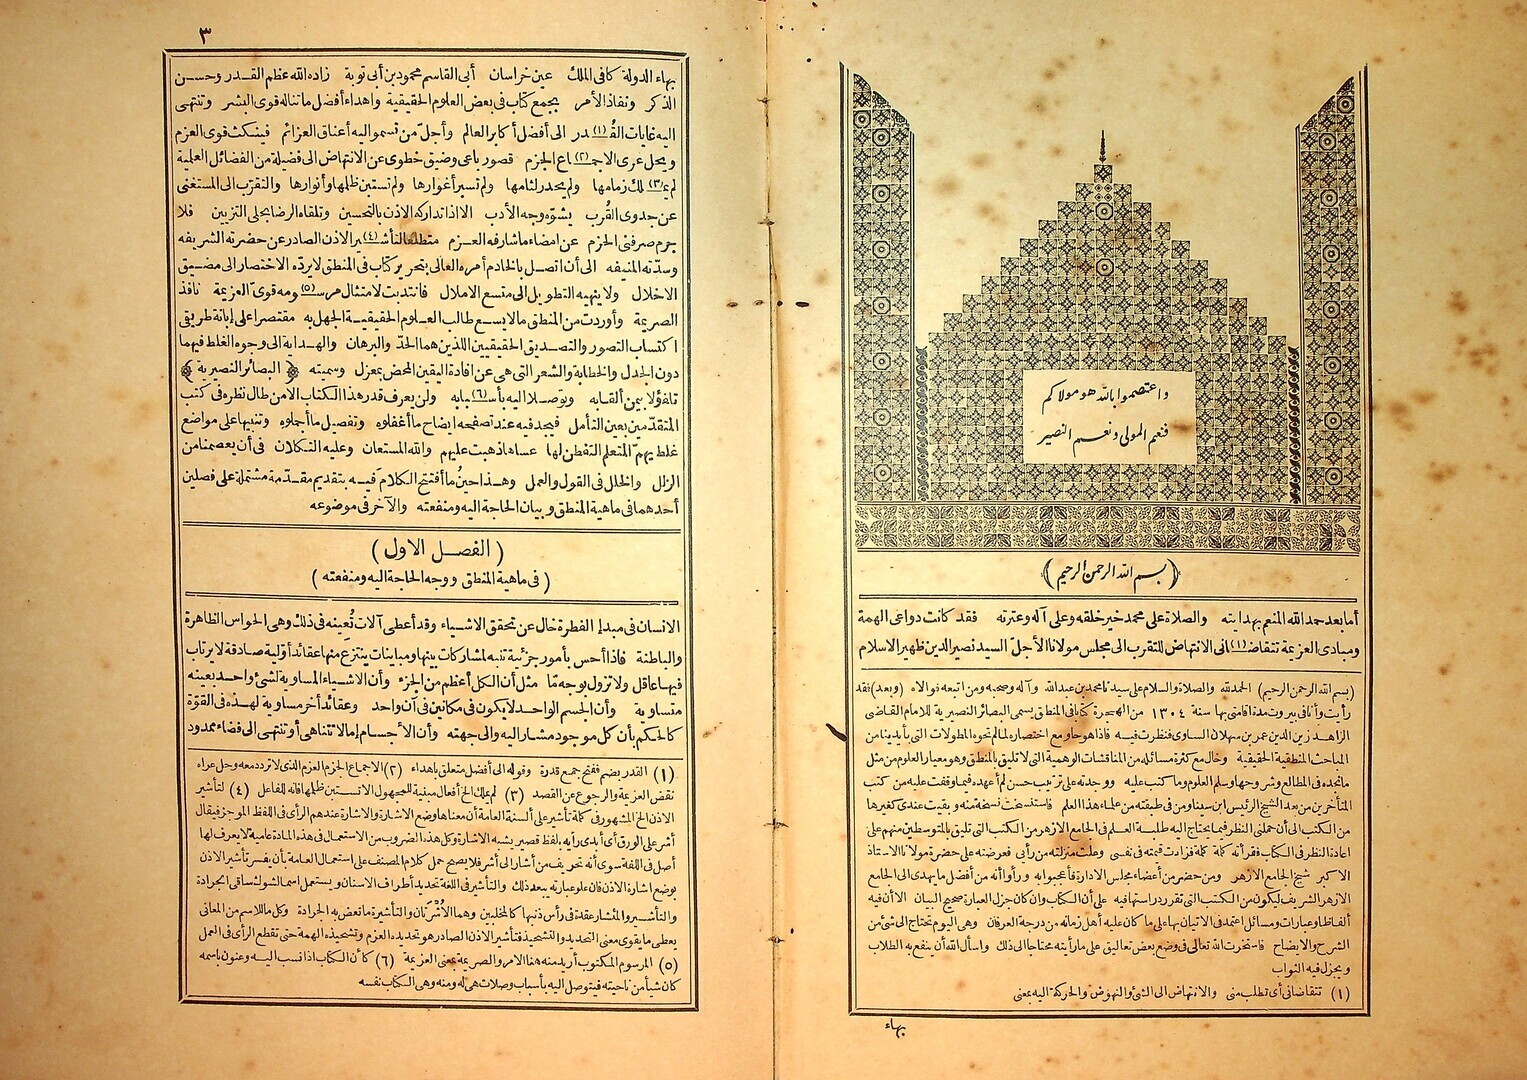 واعتصموا بالله هو مولاكم
فنعم المولى ونعم النصير
(بسم الله الرحمن الرحيم)
أما بعد حمد الله المنعم بهدايته والصلاة على محمد خير خلقه وعلى آله وعترته فقد كانت دواعى الهمة
ومبادى العزيمة تتقاضا(١)نى الانتهاض للتقرب الى مجلس مولانا الأجلّ السيد نصير الدين ظهير الاسلام
(بسم الله الرحمن الرحيم) الحمد لله والصلاة والسلام على سيدنا محمد بن عبد الله وآله وصحبه ومن اتبعه فوالاه (وبعد) فقد
رأيت وأنا فى بيروت مدة اقامتى بها سنة ١٣٠٤ من الهجرة كتابا فى المنطق يسمى البصائر النصيرية للامام القاضى
الزاهد زين الدين عمر بن سهلان الساوى فنظرت فيه فاذا هو حاو مع اختصاره لما لم تحوه المطولات التى بأيدينا من
المباحث المنطقية الحقيقية وخال مع كثرة مسائله من المناقشات الوهمية التى لا تليق بالمنطق وهو معيار العلوم من مثل
ما تجده فى المطالع وشروحها وسلم العلوم وما كتب عليه ووجدته على ترتيب حسن لم أعهده فيما وقفت عليه من كتب
المتأخرين من بعد الشيخ الرئيس ابن سينا ومن فى طبقته من علماء هذا العلم فاستنسخت نسخة منه وبقيت عندى كغيرها
من الكتب الى أن حملنى النظر فيما يحتاج اليه طلبة العلم فى الجامع الازهر من الكتب التى تليق بالمتوسطين منهم على
اعادة النظر فى الكتاب فقرأته كلمة كلمة فزادت قيمته فى نفسى وعلت منزلته من رأيى فعرضته على حضرة مولانا الاستاذ
الاكبر شيخ الجامع الازهر ومن حضر من أعضاء مجلس الادارة فأعجبوا به ورأوا أنه من أفضل ما يهدى الى الجامع
الازهر الشريف ليكون من الكتب التى تقرر دراستها فيه على أن الكتاب وان كان جزل العبارة صحيح البيان الا أن فيه
ألفاظا وعبارات ومسائل اعتمد فى الاتيان بها على ما كان عليه أهل زمانه من درجة العرفان وهى اليوم تحتاج الى شئ من
الشرح والايضاح فاستخرت الله تعالى فى وضع بعض تعاليق على ما رأيته محتاجا الى ذلك واسأل الله أن ينفع به الطلاب
ويجزل فيه الثواب
(١) تتقاضانى أى تطلب منى والانتهاض الى الشئ والنهوض والحركة اليه بمعنى
بهاء
٣
بهاء الدولة كافى الملك عين خراسان أبى القاسم محمود بن أبى توبة زاده الله عظم القدر وحسن
الذكر ونفاذ الأمر بجمع كتاب فى بعض العلوم الحقيقية واهداء أفضل ما تناله قوى البشر وتنتهى
اليه غايات القُ(١)در الى أفضل أكابر العالم وأجلّ من تسمو اليه أعناق العزائم فينكث قوى العزم
ويحل عرى الاجم(٢)اع الجزم قصور باعى وضيق خطوى عن الانتهاض الى فضيلة من الفضائل العلمية
لم يم(٣)لك زمامها ولم يحدر لثامها ولم تسبر أغوارها ولم تستبن ظلمها وأنوارها والتقرّب الى المستغنى
عن جدوى القُرب يشوّه وجه الأدب الا اذا تداركه الاذن بالتحسين وتلقاه الرضا بحلى التزيين فلا
جرم صرفنى الحزم عن امضاء ما شارفه العزم متطلعا لتأش(٤)ير الاذن الصادر عن حضرته الشريفه
وسدّته المنيفه الى أن اتصل بالخادم أمره العالى بتحرير كتاب فى المنطق لا يردّه الاختصار الى مضيق
الاخلال ولا ينهيه التطويل الى متسع الاملال فانتدبت لامتثال مرس(٥)ومه قوىّ العزيمة نافذ
الصريمة وأوردت من المنطق ما لا يسع طالب العلوم الحقيقية الجهل به مقتصرا على إبانة طريق
اكتساب التصور والتصديق الحقيقيين اللذين هما الحدّ والبرهان والهداية الى وجوه الغلط فيهما
دون الجدل والخطابة والشعر التى هى عن افادة اليقين المحض بمعزل وسميته ﴿البصائر النصيرية﴾
تفاؤلا بيمن ألقابه وتوصلا اليه بأس(٦)بابه ولن يعرف قدر هذا الكتاب الا من طال نظره فى كتب
المتقدّمين بعين التأمل فيجد فيه عند تصفحه ايضاح ما أغفلوه وتفصيل ما أجملوه وتنبيها على مواضع
غلط يهمّ المتعلم التفطن لها عساها ذهبت عليهم والله المستعان وعليه التكلان فى أن يعصمنا من
الزلل والخلل فى القول والعمل وهذا حينُ ما أفتتح الكلام فيه بتقديم مقدّمة مشتملة على فصلين
أحدهما فى ماهية المنطق وبيان الحاجة اليه ومنفعته والآخر فى موضوعه
(الفصل الاول)
(فى ماهية المنطق ووجه الحاجة اليه ومنفعته)
الانسان فى مبدإ الفطرة خال عن تحقق الاشياء وقد أعطى آلات تُعينه فى ذلك وهى الحواس الظاهرة
والباطنة فاذا أحس بأمور جزئية تنبه لمشاركات بينها ومباينات ينتزع منها عقائد أوّلية صادقة لا يرتاب
فيها عاقل ولا تزول بوجه مّا مثل أن الكل أعظم من الجزء وأن الاشياء المساوية لشئ واحد بعينه
متساوية وأن الجسم الواحد لا يكون فى مكانين فى آن واحد وعقائد أخر مساوية لهذه فى القوّة
كالحكم بأن كل موجود مشار اليه والى جهته وأن الأجسام إما لا تتناهى أو تنتهى الى فضاء ممدود
(١) القدر بضم ففتح جمع قدرة وقوله الى أفضل متعلق باهداء (٢) الاجماع الجزم العزم الذى لا تردد معه وحل عراه
نقض العزيمة والرجوع عن القصد (٣) لم يملك الخ أفعال مبنية للمجهول الا تستبن ظلمها فانه للفاعل (٤) لتأشير
الاذن الخ المشهور فى كلمة تأشير على ألسنة العامة أن معناها وضع الاشارة والاشارة عندهم الرأى فى اللفظ الموجز فيقال
أشر على الورق أى أبدى رأيه بلفظ قصير يشبه الاشارة وكل هذا الضروب من الاستعمال فى هذه المادة عامية لا يعرف لها
أصل فى اللغة سوى أنه تحريف من أشار الى أشر فلا يصح حمل كلام المصنف على استعمال العامة بأن يفسر تأشير الاذن
بوضع اشارة الاذن فان علو عبارته يبعد ذلك والتأشير فى اللغة تحديد أطراف الاسنان ويستعمل اسما لشوك ساقى الجرادة
والتأشير والمنشار عقدة فى رأس ذنبها كالمخلبين وهما الأُشْرَتان والتأشيرة ما تعض به الجرادة وكل ما للاسم من المعانى
يعطى ما يقوى معنى التحديد والتشحيذ فتأشير الاذن الصادر هو تحديده العزم وتشحيذه الهمة حتى تقطع الرأى فى العمل
(٥) المرسوم المكتوب أريد منه هنا الامر والصريمة بمعنى العزيمة (٦) كأن الكتاب اذا نسب اليه وعنون باسمه
كان شيأ من ناحيته فيتوصل اليه بأسباب وصلات هى له ومنه وهى الكتاب نفسه